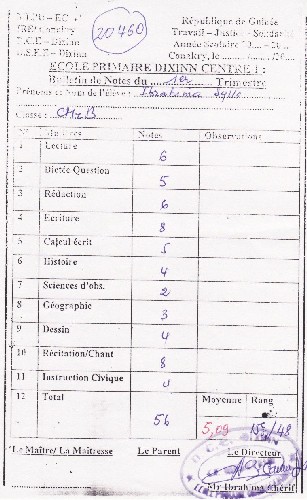 20460
République de Guinée
Travail – Justice – Solidarité
Année Scolaire 20
Conakry, le
ECOLE PRIMAIRE DIXINN CENTRE I :
Bulletin de Notes du 1er Trimestre
Prénoms et Nom de l'élève : Ibrahima Sylla
Classe :
N° Matières Notes Observations
1 Lecture 6
2 Dictée Question 5
3 Rédaction 6
4 Ecriture 8
5 Calcul écrit 5
6 Histoire 4
7 Sciences d'obs. 2
8 Géographie 3
9 Dessin 4
10 Récitation/Chant 8
11 Instruction Civique
12 Total 56
Moyenne 5,09
Rang 15e/48
Le Maître/ La Maîtresse Le Parent Le Directeur
Mr Ibrahima Chérif